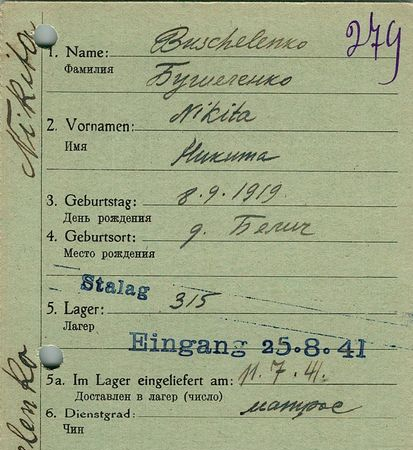 279
Nikita
1. Name: Buschelenko
Фамилия
Бушеленко
2. Vornamen: Nikita
Имя
Никита
3. Geburtstag: 8.9.1919.
День рождения
4. Geburtsort: д. Белич
Место рождения
Stalag
5. Lager: 315
Лагер
Eingang 25.8.41
5a. Im Lager eingeliefert am: 11.7.41.
Доставлен в лагер (число)
6. Dienstgrad: матрос
Чин
elenko